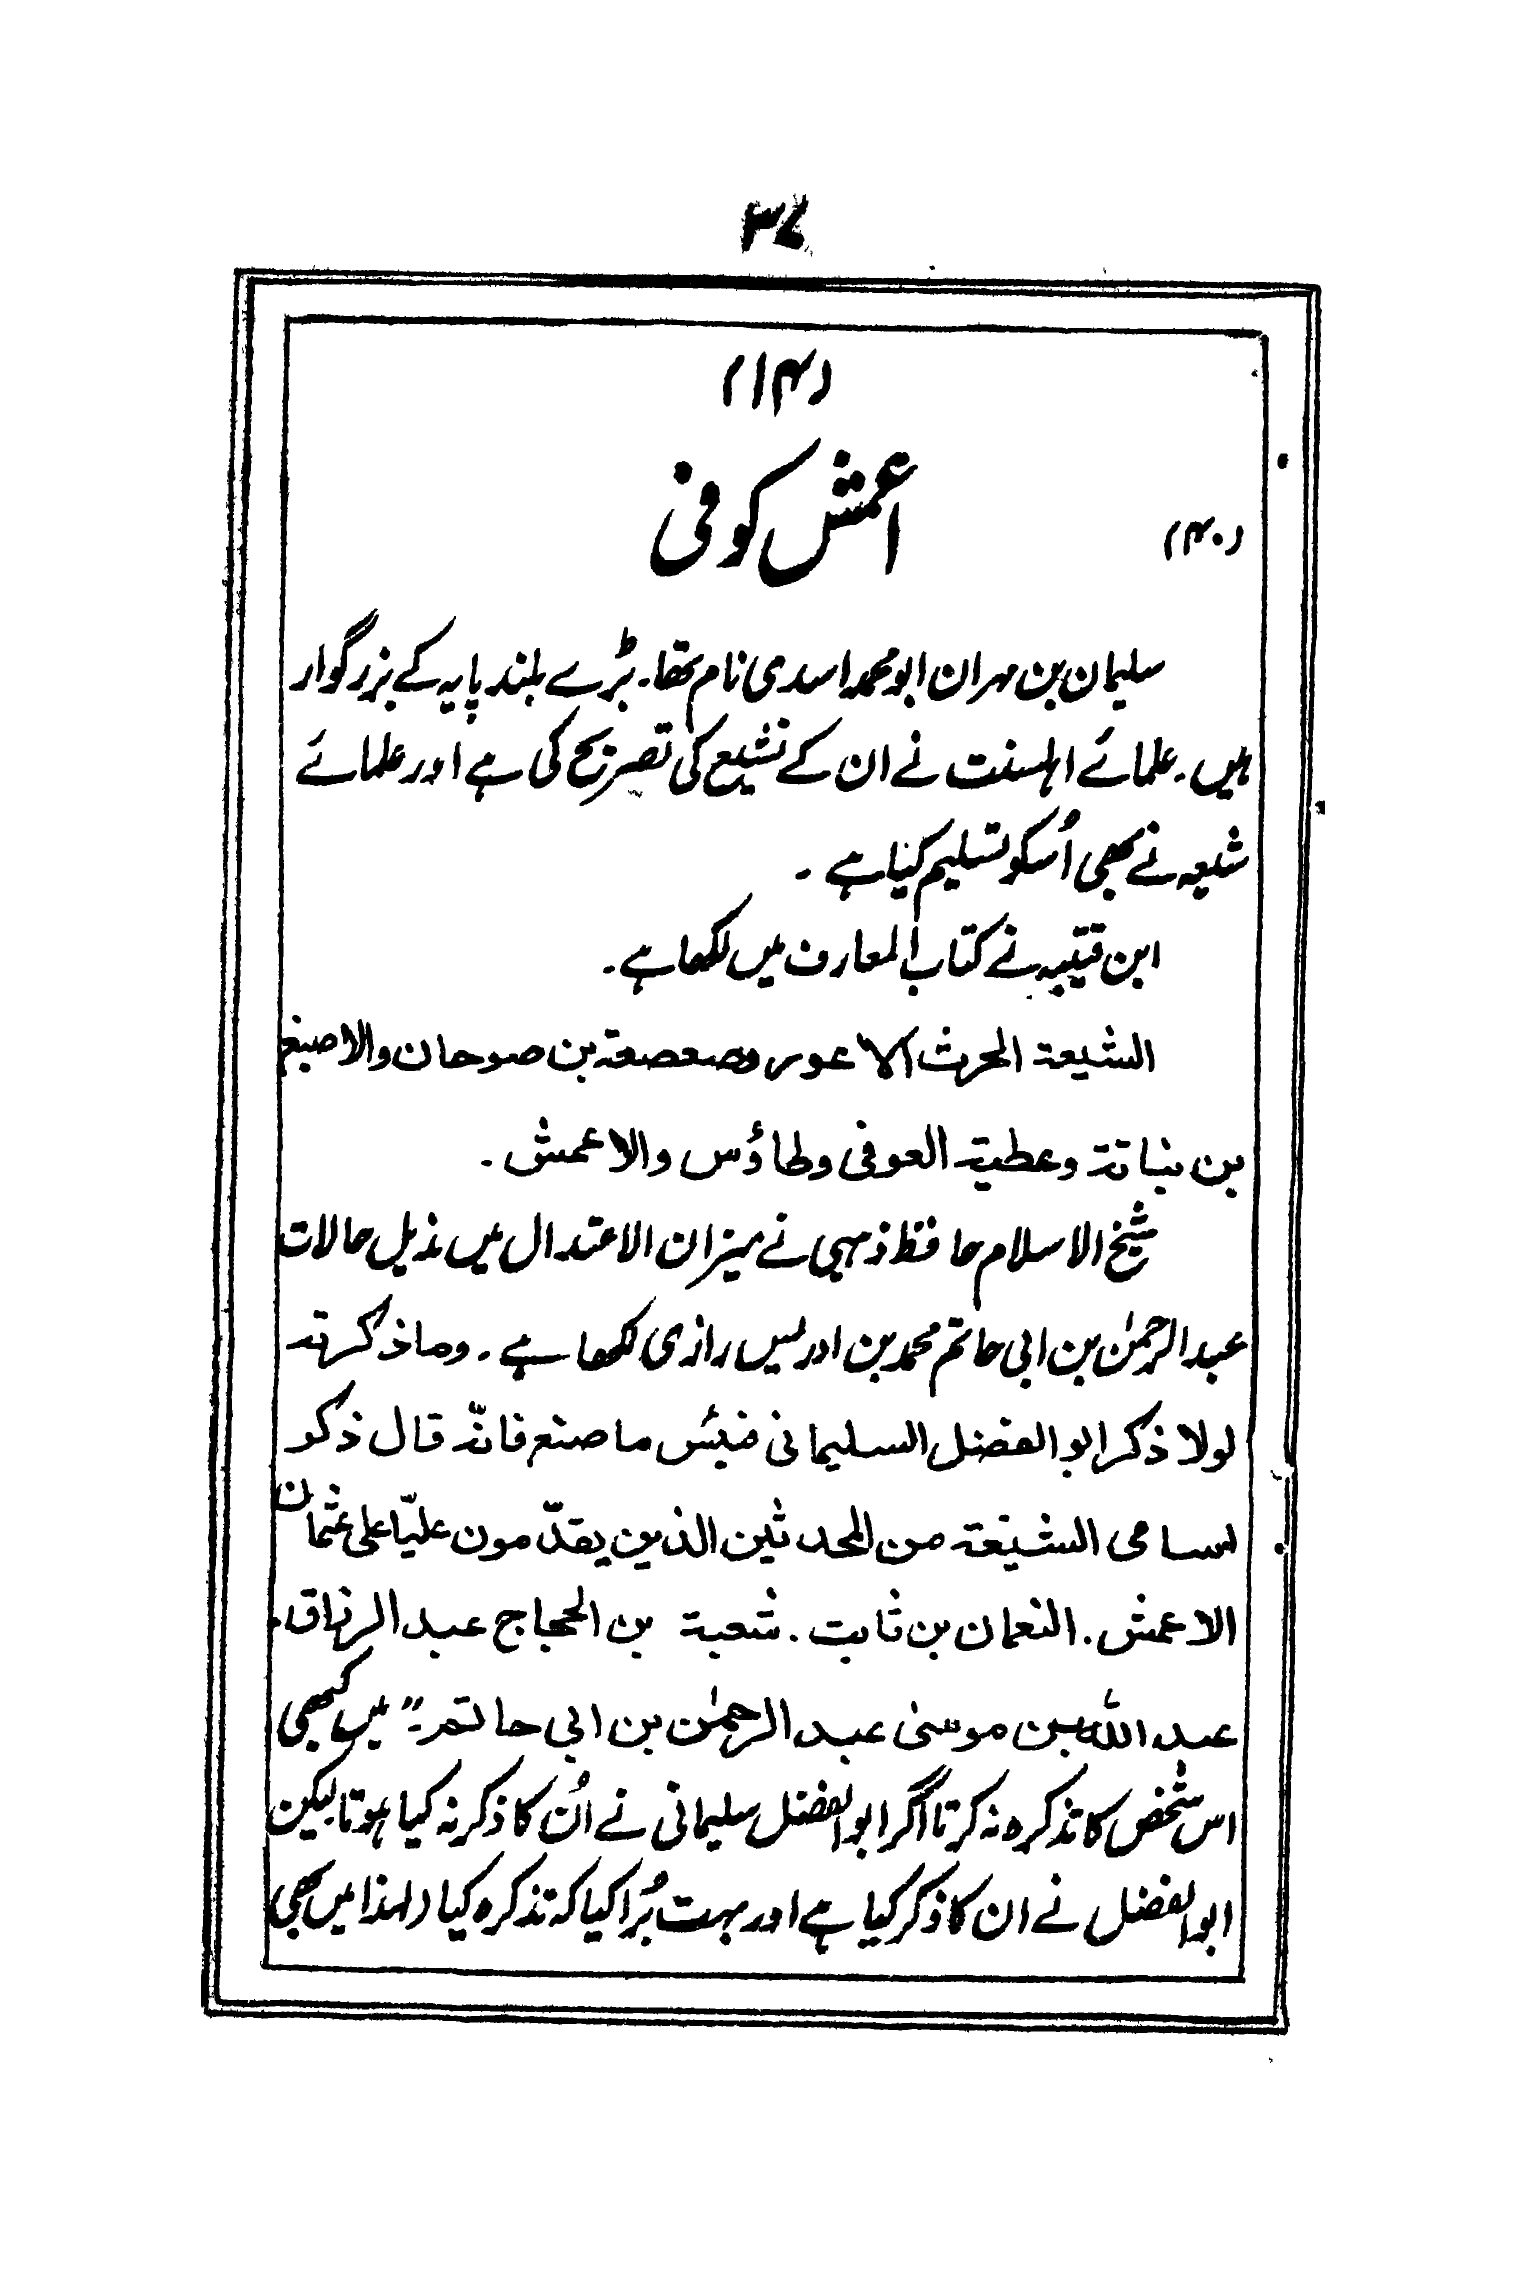 ۳۷
(۱۴)
اعمش کوفی
(۴۰)
سلیمان بن مہران ابو محمد اسدی نام تھا۔ بڑے بلند پایہ کے بزرگوار
ہیں۔ علمائے اہلسنت نے ان کے تشیع کی تصریح کی ہے اور علمائے
شیعہ نے بھی اُسکو تسلیم کیا ہے ۔
ابن قتیبہ نے کتاب المعارف میں لکھا ہے۔
الشیعة الحرث الاعور وصعصعة بن صوحان والاصبغ
بن نباتة وعطیة العوفی وطاؤس والاعمش۔
شیخ الاسلام حافظ ذہبی نے میزان الاعتدال میں بذیل حالات
عبدالرحمٰن بن ابی حاتم محمد بن ادریس رازی لکھا ہے ۔ وما ذکرتہ
لولا ذکر ابو الفضل السلیمانی فبئس ما صنع فانّہ قال ذکر
اسامی الشیعة من المحدثین الذین یقدّمون علیّا علی عثمان
الاعمش۔ النعمان بن ثابت ۔ شعبة بن الحجاج عبد الرزاق۔
عبد اللہ بن موسیٰ عبد الرحمٰن بن ابی حاتم۔" میں کبھی
اس شخص کا تذکرہ نہ کرتا اگر ابو الفضل سلیمانی نے اُن کا ذکر نہ کیا ہوتا لیکن
ابو الفضل نے ان کا ذکر کیا ہے اور بہت بُرا کیا کہ تذکرہ کیا (لہذا میں بھی